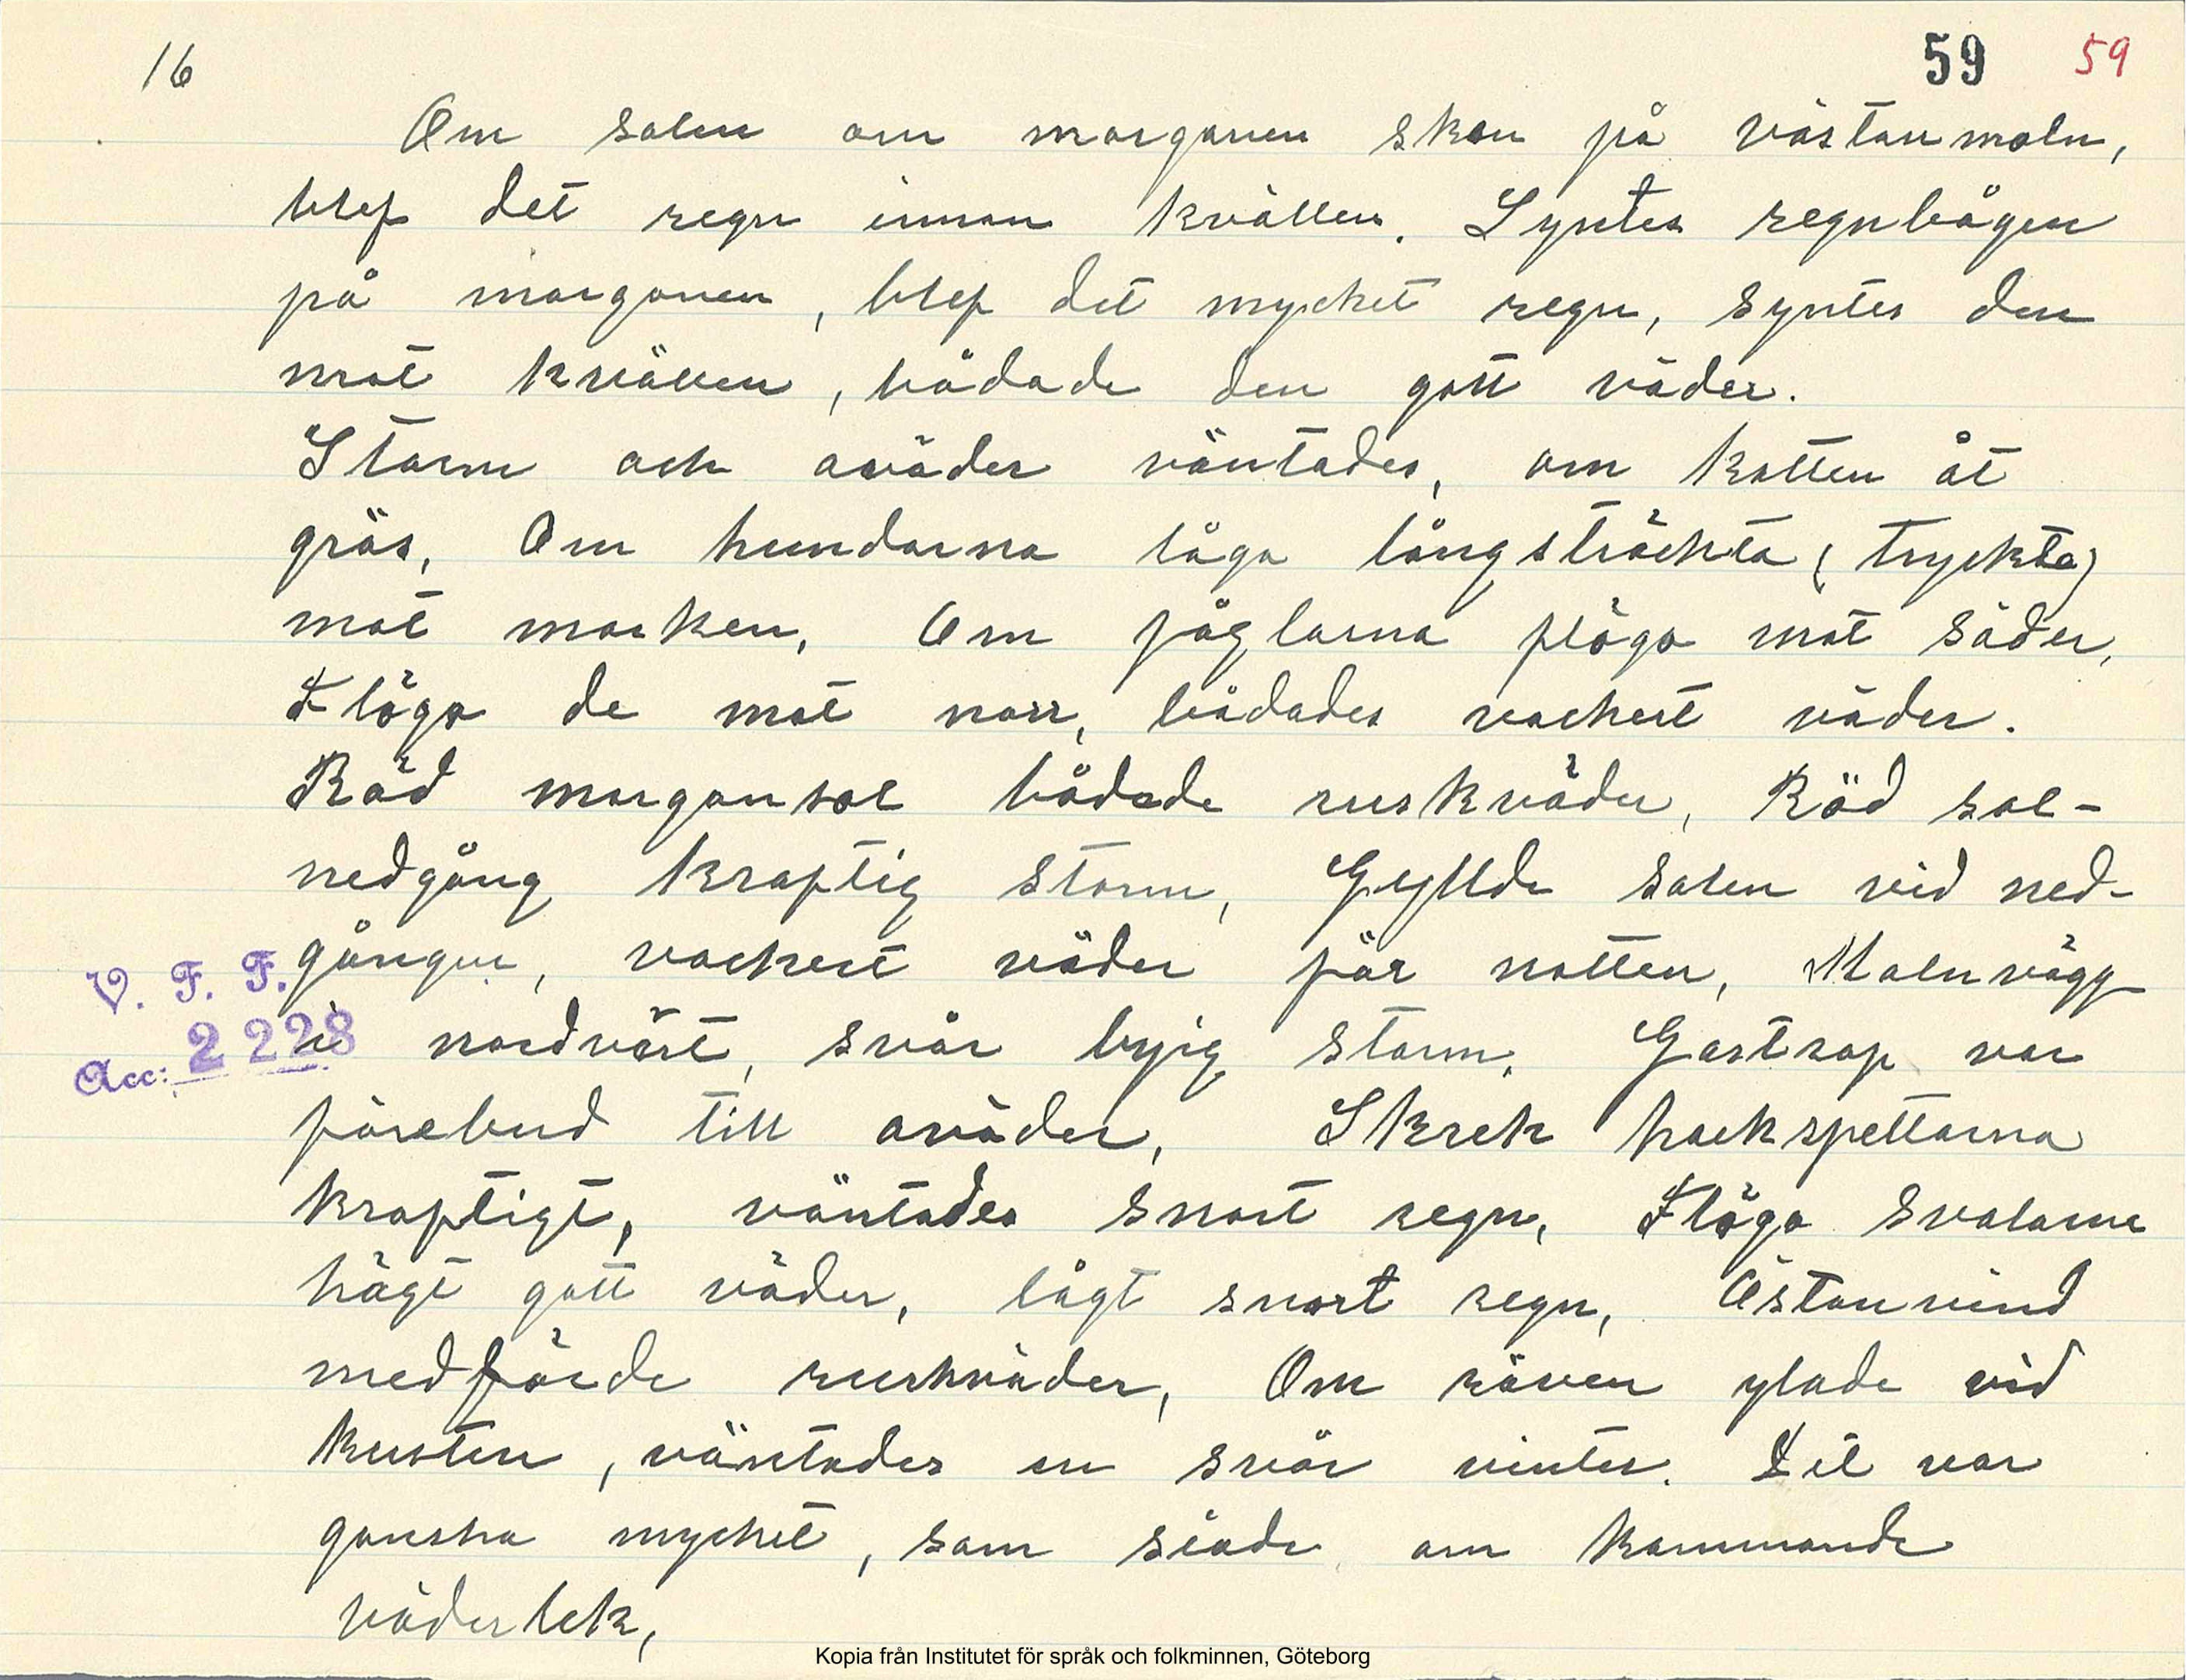 16 59 59
Om solen om morgonen sken på västanmoln,
blef det regn innan kvällen. Syntes regnbågen
på morgonen, blef det mycket regn, syntes den
mot kvällen, bådade den gott väder.
Storm och oväder väntades, om katten åt
gräs, Om hundarna låga långsträckta (tryckta)
mot marken, Om fåglarna flögo mot söder,
Flögo de mot norr, bådades vackert väder.
Röd morgonsol bådade ruskväder, Röd sol-
nedgång kraftig storm, Gyllde solen vid ned-
gången, vackert väder för natten, Molnvägg
V. F. F.
i nordväst, svår byig storm, Gastrop var
Acc: 2228
förebud till oväder, Skrek hackspettarna
kraftigt, väntades snart regn, Flögo svalorna
högt gott väder, lågt snart regn, Östanvind
medförde ruskväder, Om räven ylade vid
kusten, väntades en svår vinter. Det var
ganska mycket, som siade om kommande
väderlek,
Kopia från Institutet för språk och folkminnen, Göteborg